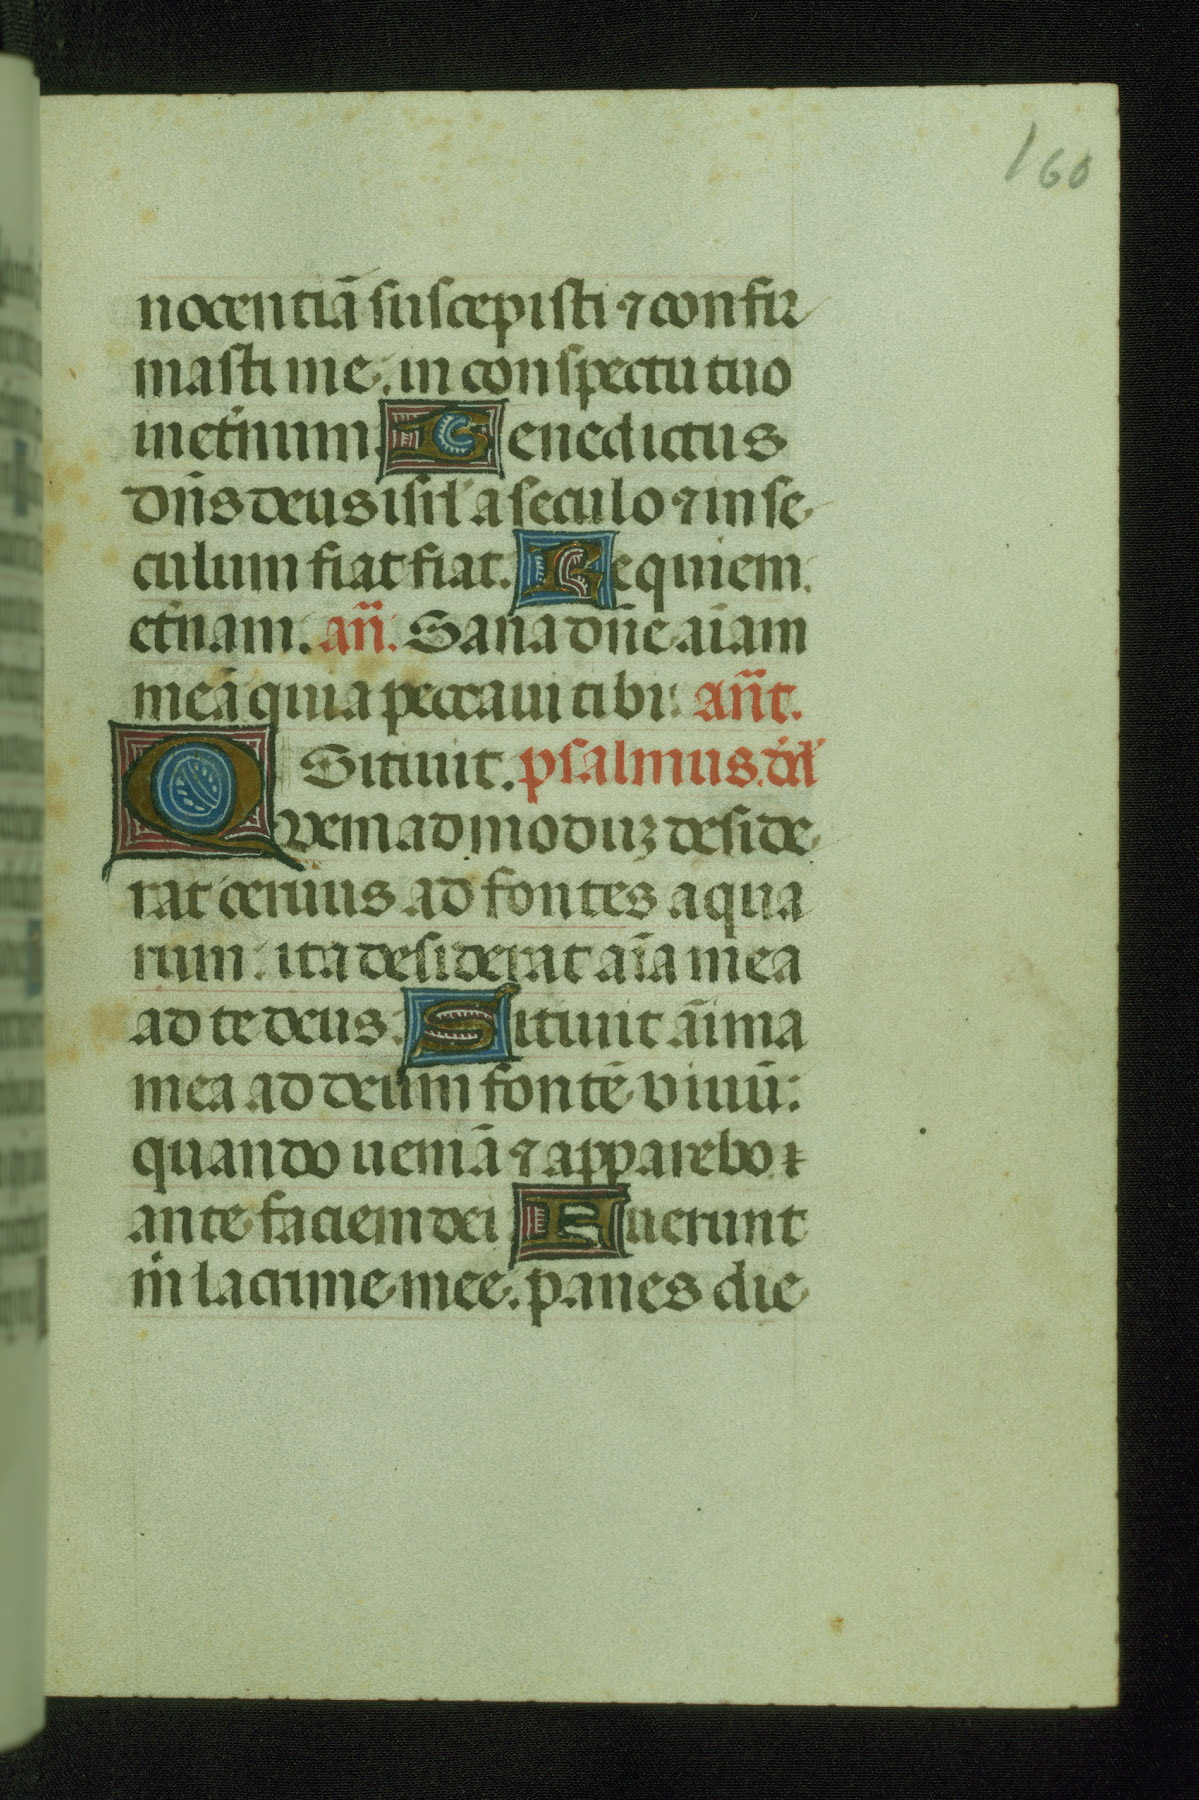 160
nocentiā suscepisti ⁊ confir
masti me. in conspectu tuo
inet̄num. Benedictus
dn̄s deus isrl̄ a seculo ⁊ in se
culum fiat fiat. Requiem
et̄nam. an̄. Sana dn̄e aīam
meā quia peccaui tibi: an̄t.
Sitiuit. psalmus. dd̄
Quemadmoduꝫ deside
rat ceruus ad fontes aqua
rum: ita desiderat aīa mea
ad te deus. Sitiuit āīma
mea ad deum fontē viuū:
quando ueniā ⁊ apparebo
ante faciem dei Fuerunt
m̍ lacrime mee. panes die